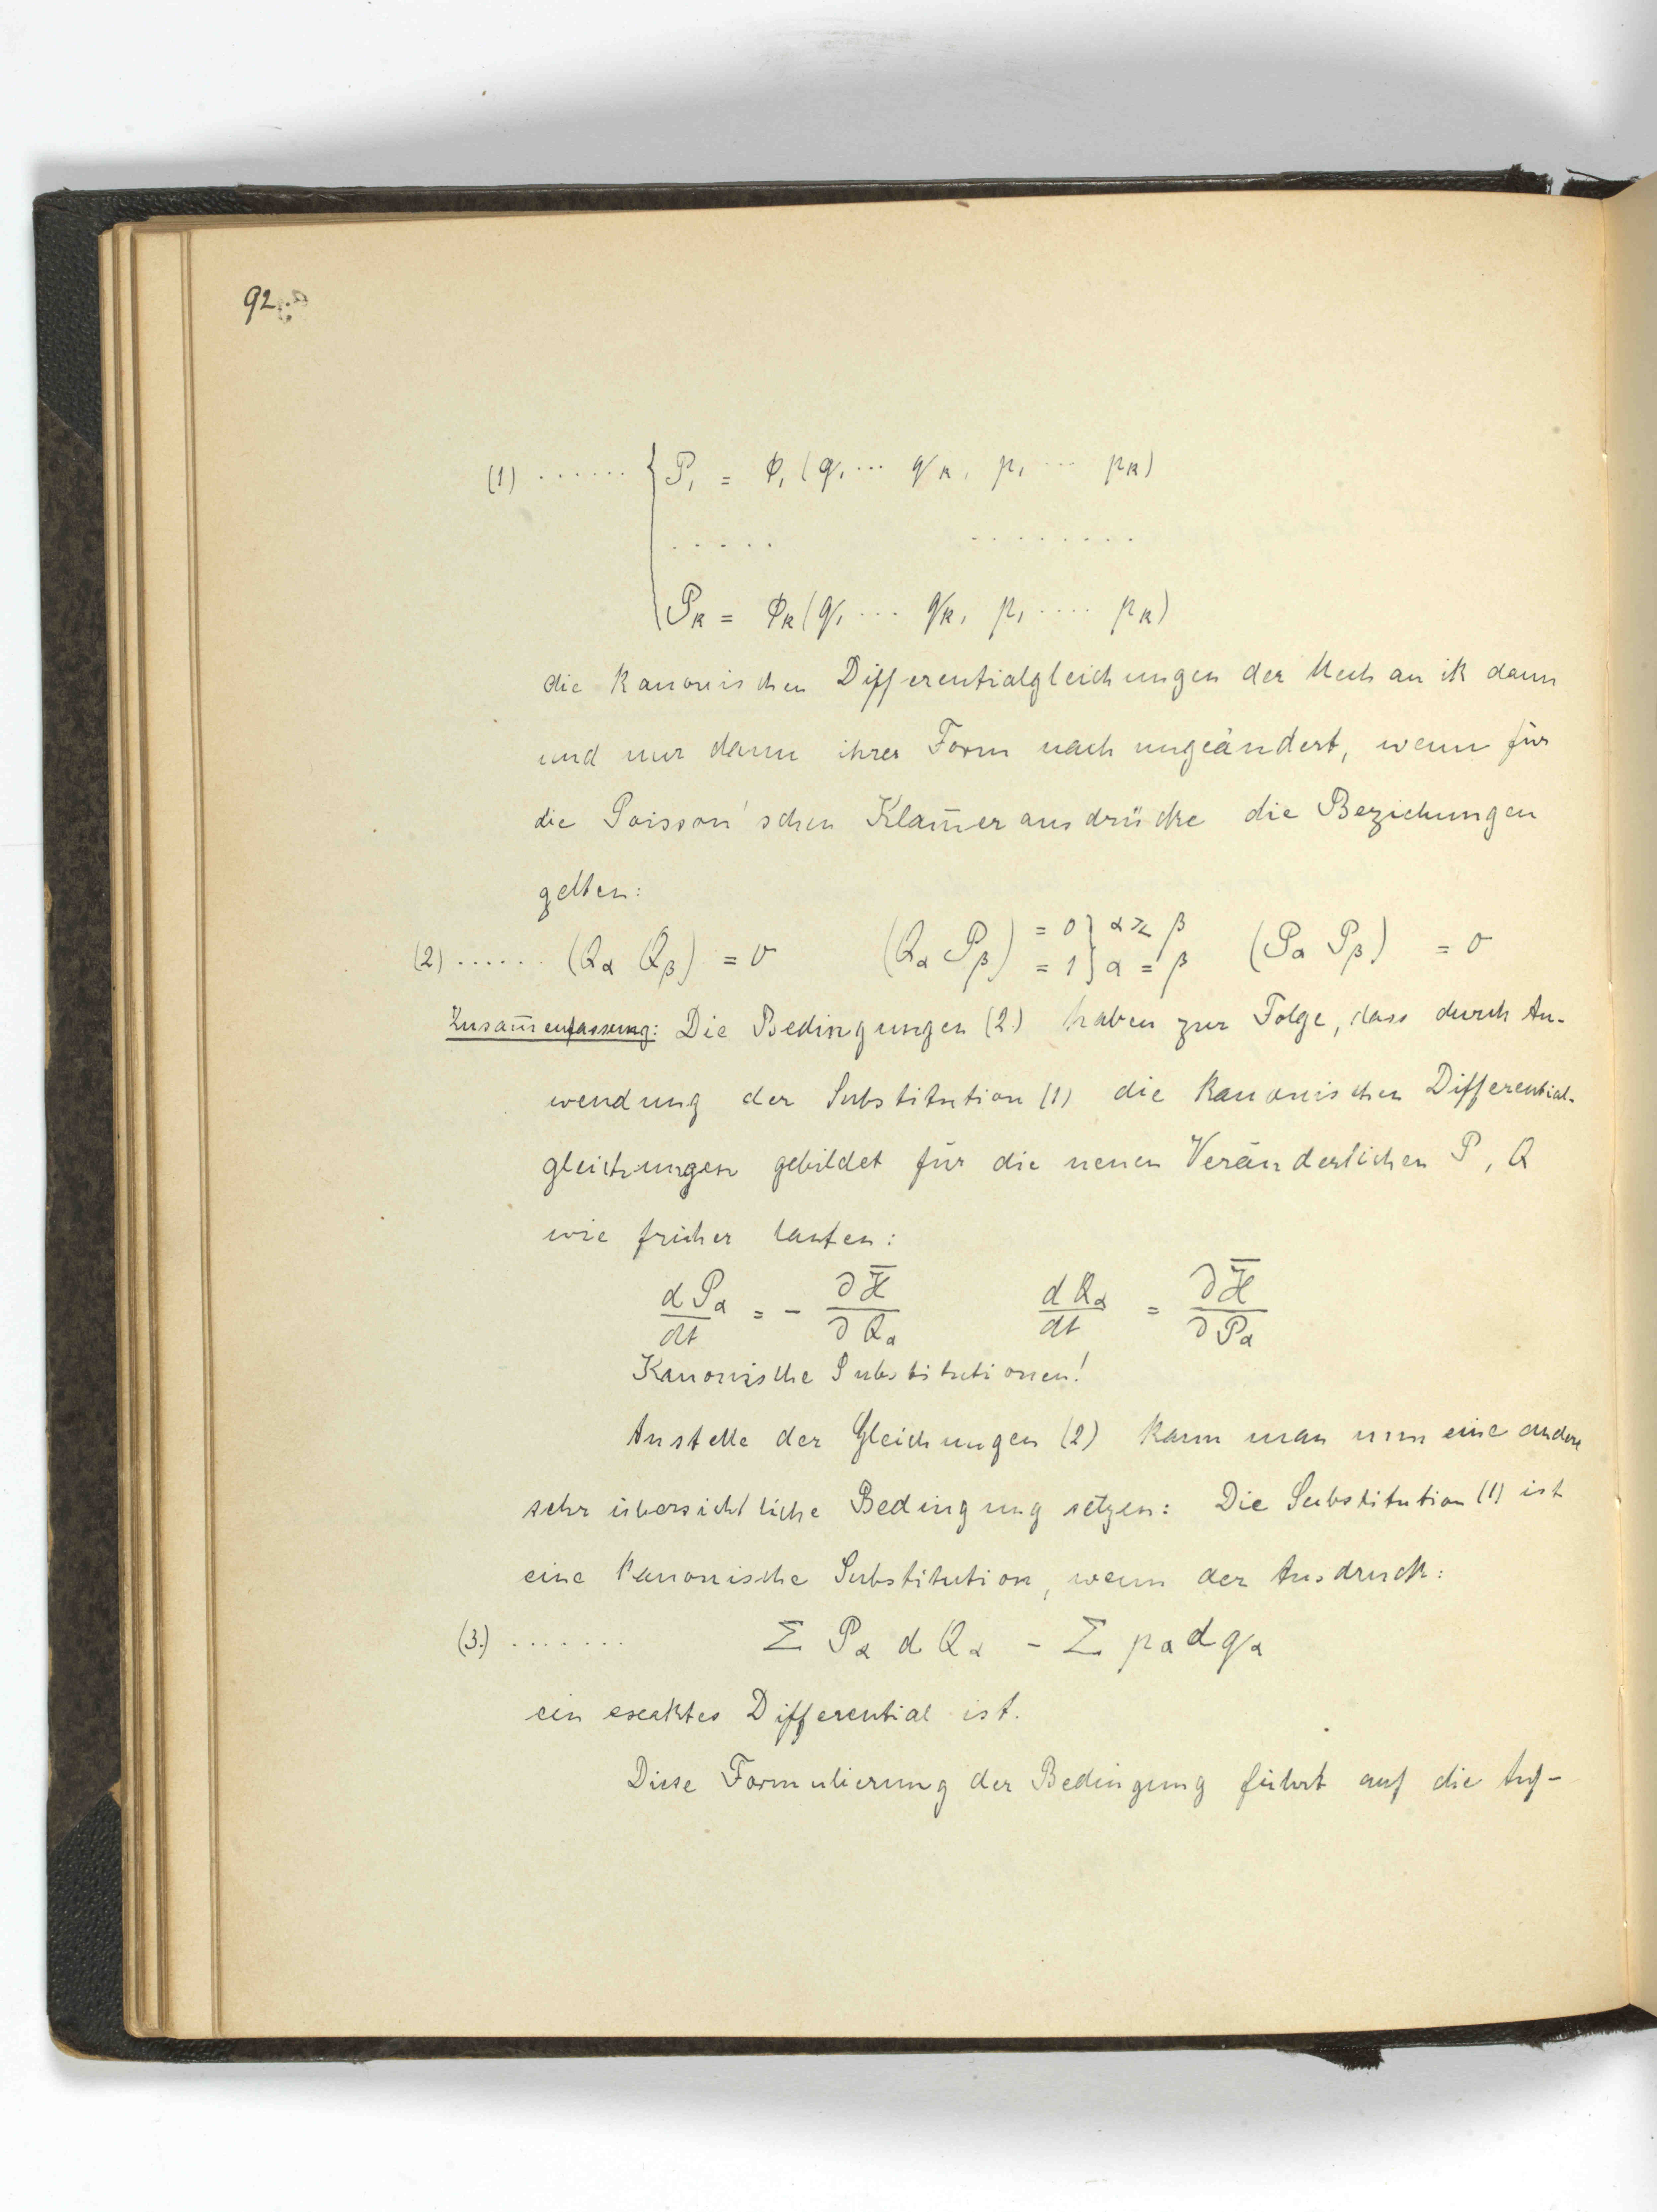 92.
(1) ...... { P₁ = φ₁(q₁ ... q_k, p₁ ... p_k)
..... ........
P_k = φ_k(q₁ ... q_k, p₁ .... p_k)
die kanonischen Differentialgleichungen der Mechanik dann
und nur dann ihrer Form nach ungeändert, wenn für
die Poisson'schen Klam̅erausdrücke die Beziehungen
gelten:
(2) ...... (Q_α Q_β) = 0 (Q_α P_β) = 0 } α ≷ β = 1 } α = β (P_α P_β) = 0
Zusam̅enfassung: Die Bedingungen (2.) haben zur Folge, dass durch An-
wendung der Substitution (1) die kanonischen Differential-
gleichungen gebildet für die neuen Veränderlichen P, Q
wie früher lauten:
dP_α/dt = - ∂H̅/∂Q_α dQ_α/dt = ∂H̅/∂P_α
Kanonische Substitutionen!
Anstelle der Gleichungen (2) kann man nun eine andere
sehr übersichtliche Bedingung setzen: Die Substitution (1) ist
eine kanonische Substitution, wenn der Ausdruck:
(3.) ....... Σ P_α dQ_α - Σ p_α dq_α
ein exaktes Differential ist.
Diese Formulierung der Bedingung führt auf die Auf-